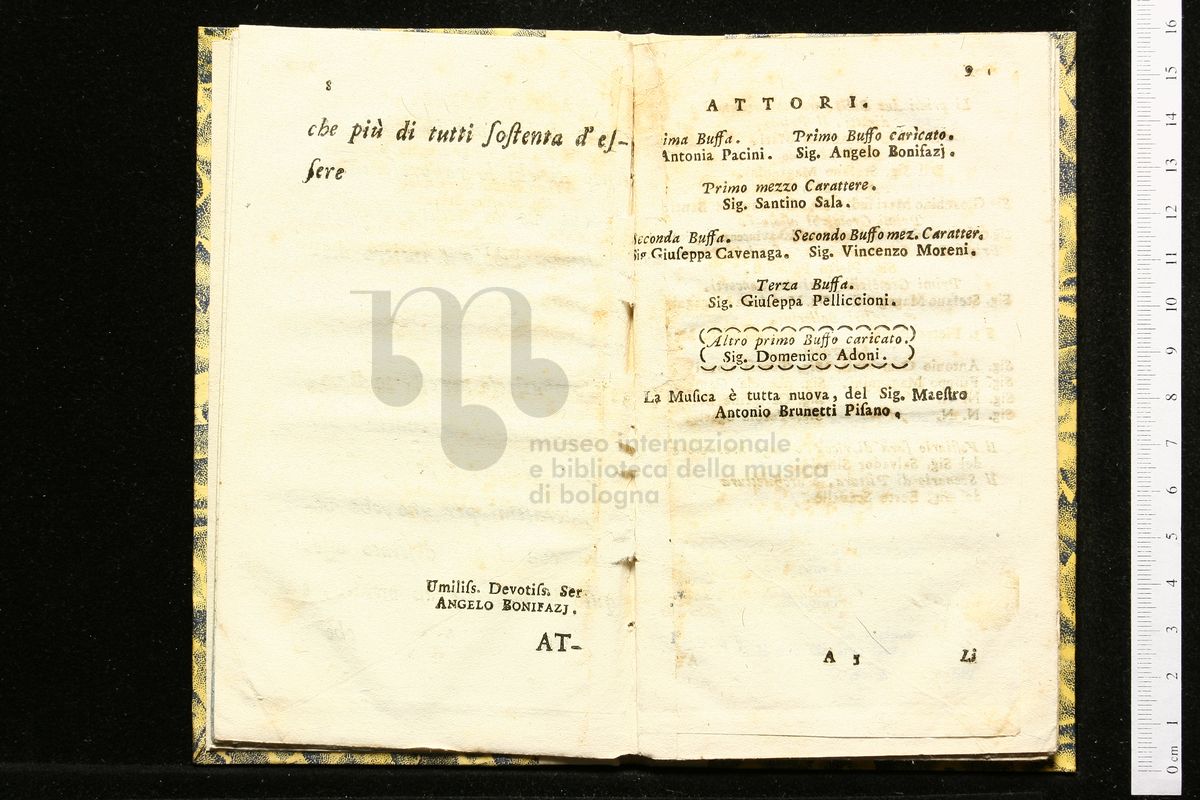 8
che più di tutti ſoſtenta d' eſ-
ſere
Umiliſs. Devotiſs. Ser
ANGELO BONIFAZJ.
AT-
9
ATTORI.
ima Buffa. Primo Buffo caricato.
Antonia Pacini. Sig. Angelo Bonifazj.
Primo mezzo Carattere.
Sig. Santino Sala.
Seconda Buffa. Secondo Buffo mez. Caratter.
Sig Giuſeppa Cavenaga. Sig. Vincenzo Moreni.
Terza Buffa.
Sig. Giuſeppa Pelliccioni.
Altro primo Buffo caricato.
Sig. Domenico Adoni.
La Muſica è tutta nuova, del Sig. Maeſtro
Antonio Brunetti Piſano.
A 3
Li
museo internazionale
e biblioteca della musica
di bologna
0 cm 1 2 3 4 5 6 7 8 9 10 11 12 13 14 15 16